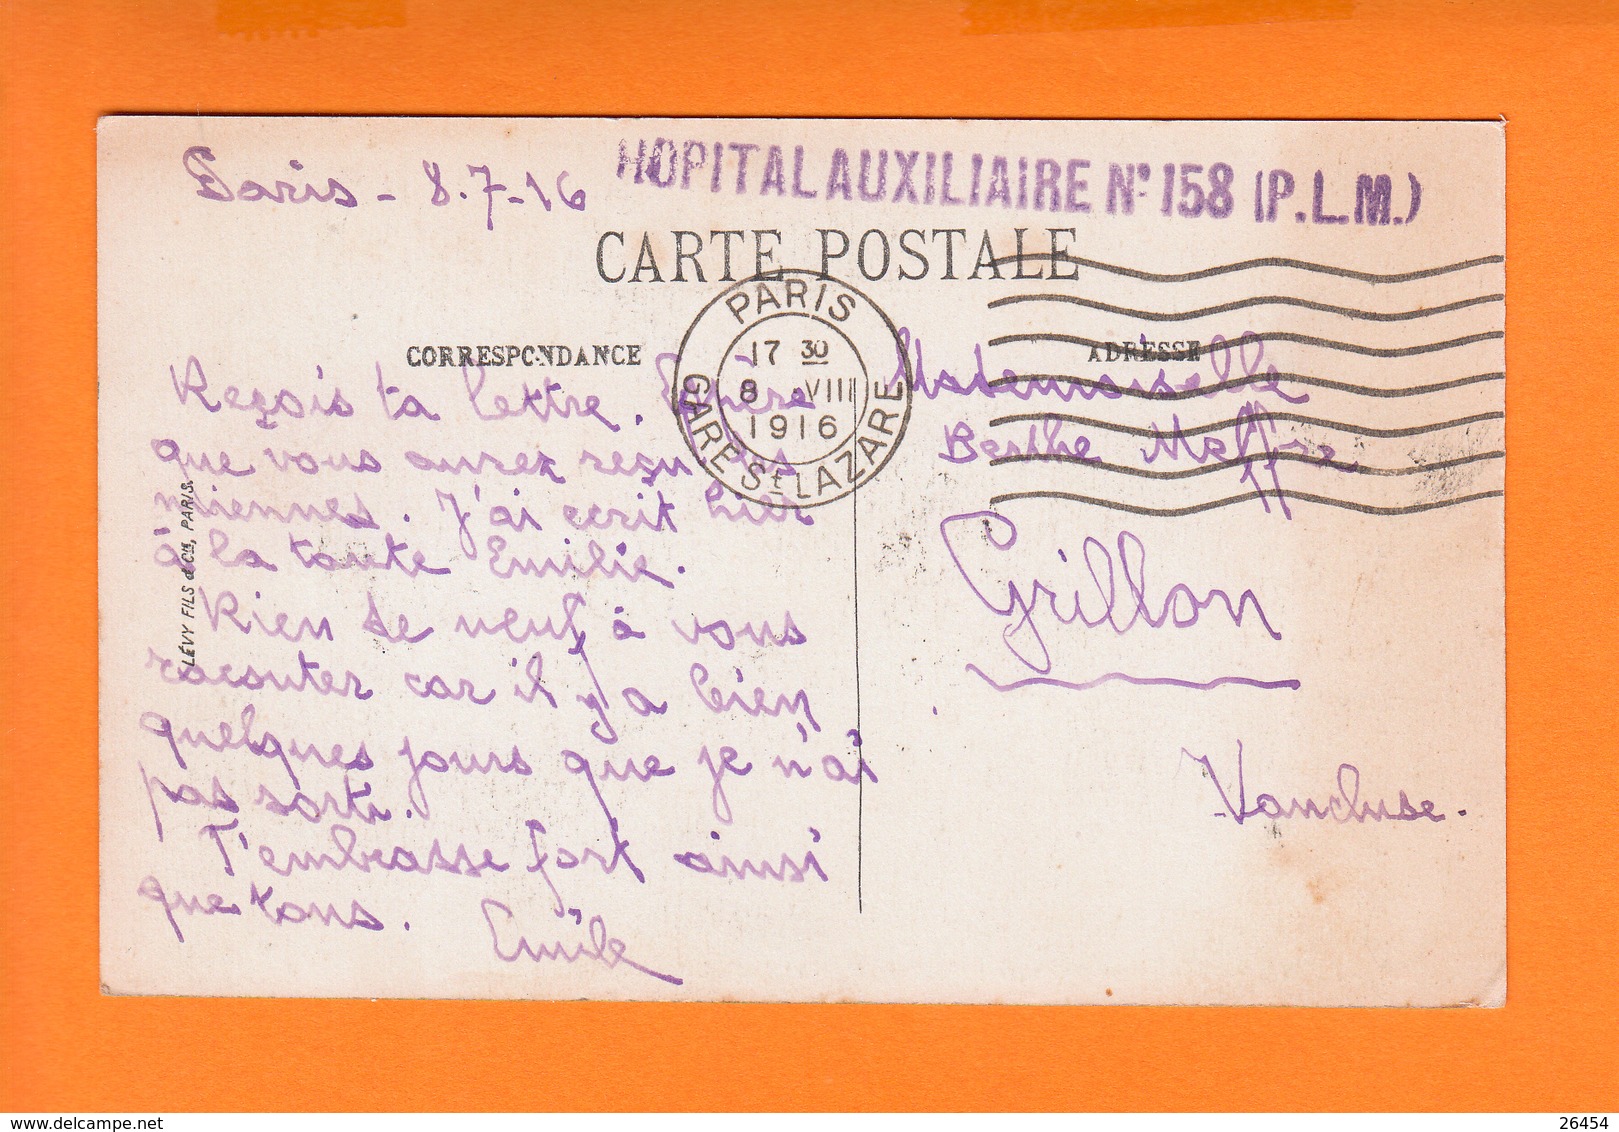 Paris - 8.7-16
HOPITAL AUXILIAIRE N° 158 (P.L.M.)
CARTE POSTALE
PARIS
17 30
8 VIII
1916
GARE St LAZARE
CORRESPONDANCE
ADRESSE
Reçois ta lettre. Espère
que vous aurez reçu les
miennes. J'ai ecrit hier
à la tante Emilie.
Rien de neuf à vous
raconter car il y a bien
quelques jours que je n'ai
pas sorti.
T'embrasse fort ainsi
que tous.
Emile
Mademoiselle
Berthe Meffre
Grillon
Vaucluse.
LÉVY FILS & Cie, PARIS.
delcampe.net
26454